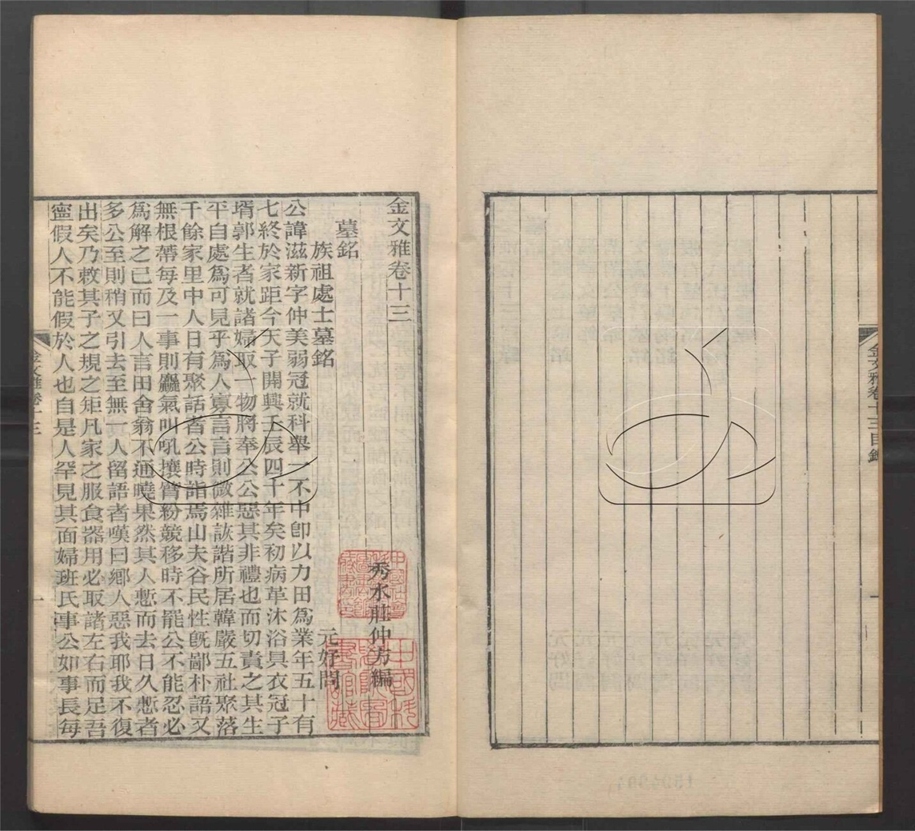 金文雅卷十三目錄
金文雅卷十三
秀水莊仲方編
墓銘
族祖處士墓銘
元好問
公諱滋新字仲美弱冠就科舉一不中卽以力田爲業年五十有
七終於家距今天子開興壬辰四十年矣初病革沐浴具衣冠子
壻郭生者就諸婦取一物將奉公公惡其非禮也而切責之其生
平自處爲可見乎爲人寡言言則敵雜詼諧所居韓巖五社聚落
千餘家里中人日有聚話者公時詣焉山夫谷民性旣鄙朴語又
無根蔕每及一事則麤氣叫吼攘臂紛競移時不罷公不能忍必
爲解之已而曰人言田舍翁不通曉果然其人慙而去日久慙者
多公至則稍又引去至無一人留語者嘆曰鄉人惡我耶我不復
出矣乃敕其子之規之矩凡家之服食器用必取諸左右而足吾
寧假人不能假於人也自是人罕見其面婦班氏事公如事長每
金文雅卷十三
一